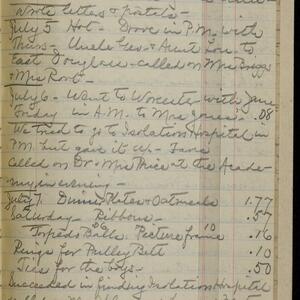 Wrote letters & Postals -
July 5 Hot - Drove in P.M. with
Thurs - Uncle Geo & Aunt Lou to
East Douglas - called on Mrs Briggs
& Mrs Robt -
July 6 - Went to Worcester with Jane
Friday in A.M. to Mrs Jones - .08
We tried to go to Isolation Hospital in
P.M. but gave it up - Fare
Called on Dr - Mrs Thice at the Acade-
my in evening -
July 7. Dinner Plates & Oatmeals 1.77
Saturday - Ribbons - .57
Torpedo Balls. Picture frame 10 .16
Rings for Pulley Belt .10
Ties for the boys - .50
Succeeded in finding Isolation Hospital